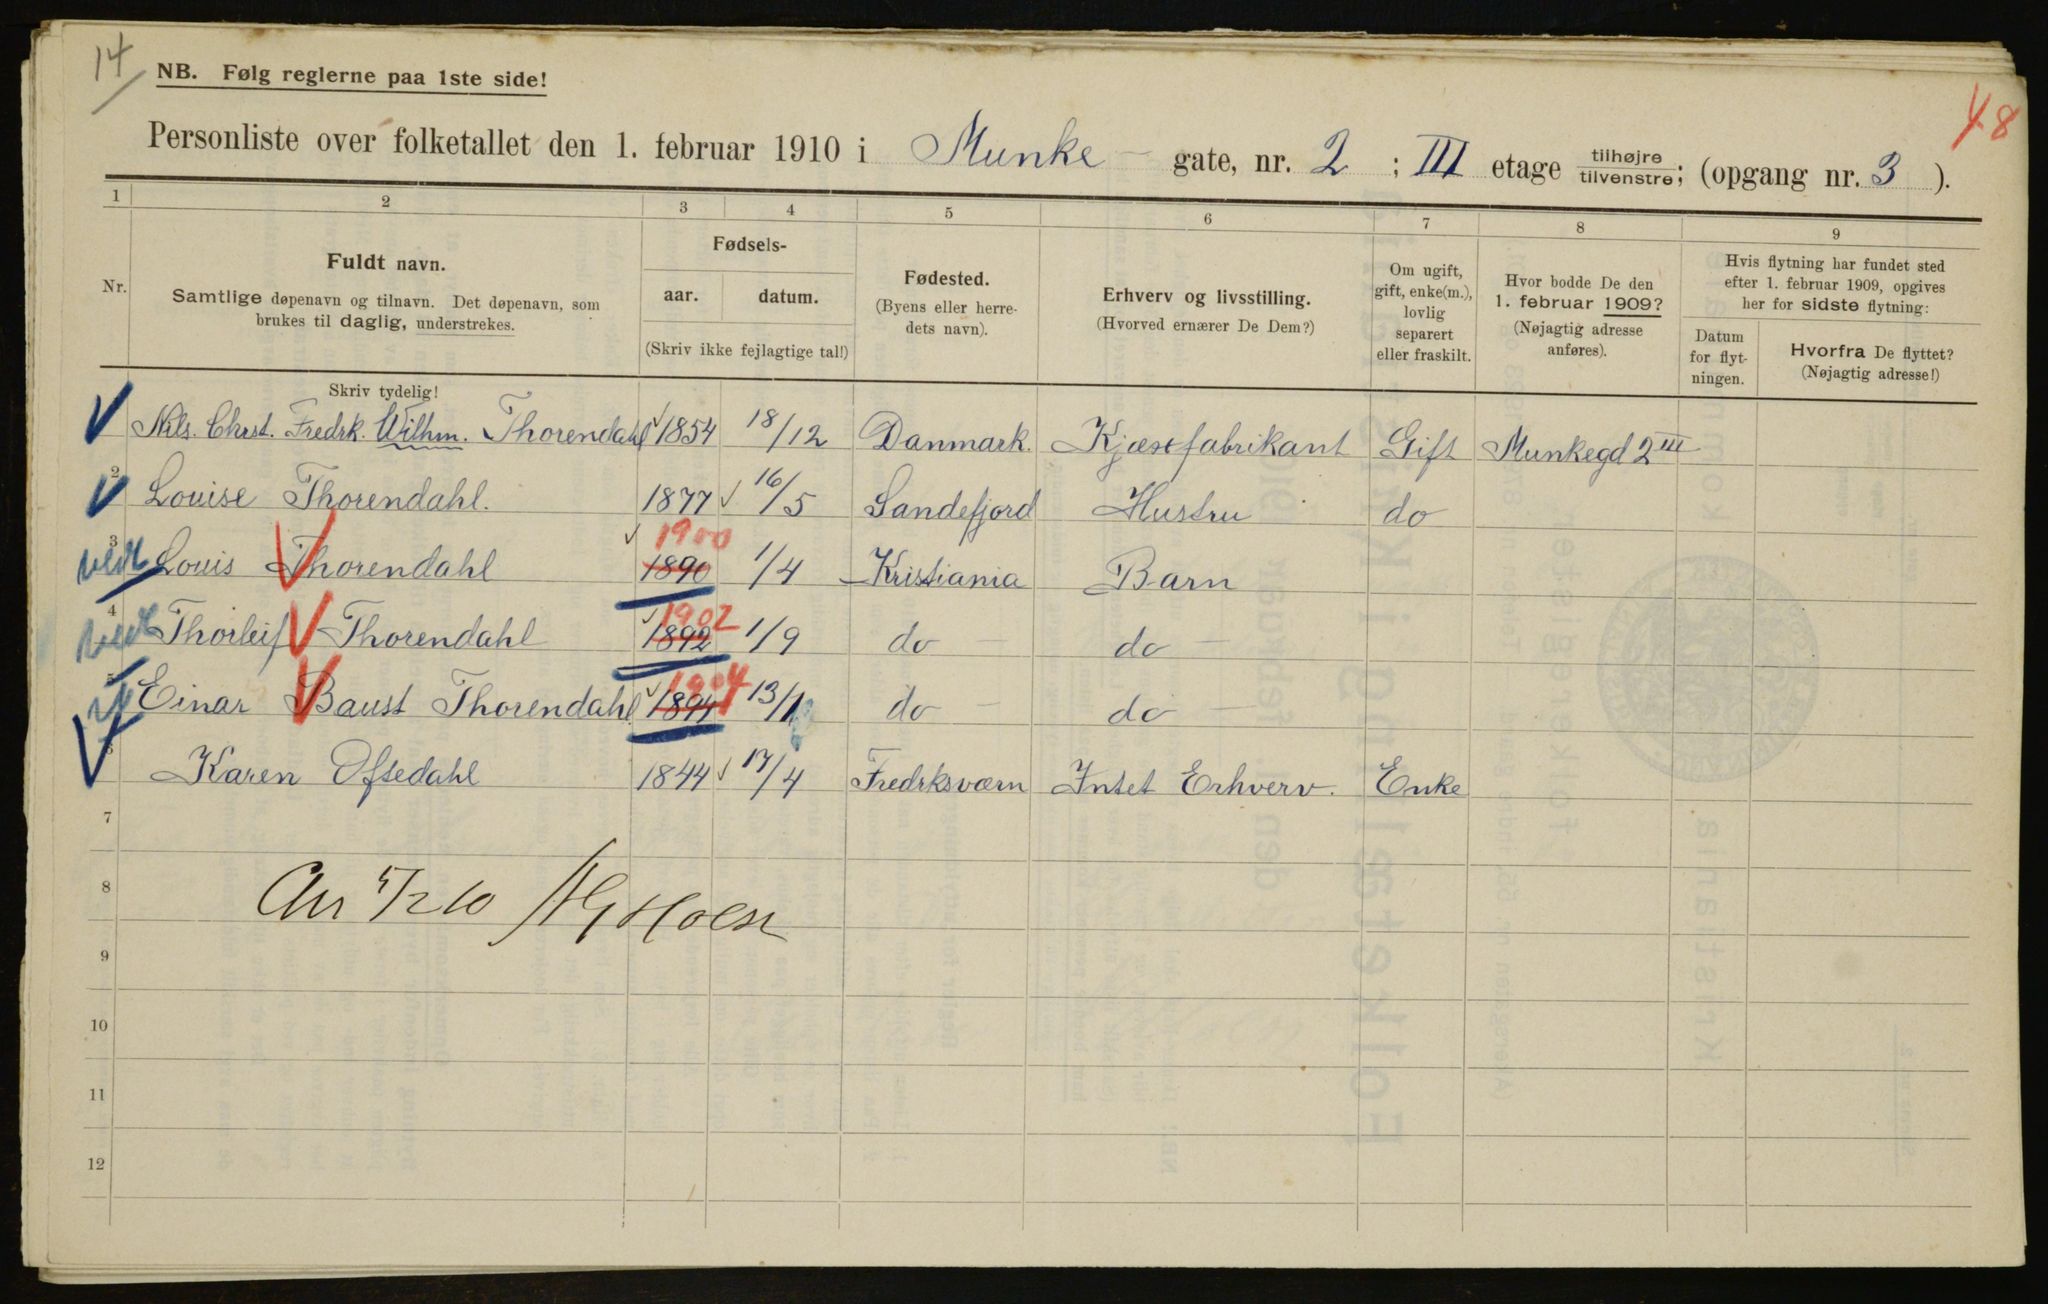 14
NB. Følg reglerne paa 1ste side!
48
Personliste over folketallet den 1. februar 1910 i Munke- gate, nr. 2 ; III etage tilhøjre/tilvenstre; (opgang nr. 3 ).
1 2 3 4 5 6 7 8 9
Nr.
Fuldt navn.
Samtlige døpenavn og tilnavn. Det døpenavn, som
brukes til daglig, understrekes.
Skriv tydelig!
Fødsels-
aar. datum.
(Skriv ikke fejlagtige tal!)
Fødested.
(Byens eller herre-
dets navn).
Erhverv og livsstilling.
(Hvorved ernærer De Dem?)
Om ugift,
gift, enke(m.),
lovlig
separert
eller fraskilt.
Hvor bodde De den
1. februar 1909?
(Nøjagtig adresse
anføres).
Hvis flytning har fundet sted
efter 1. februar 1909, opgives
her for sidste flytning:
Datum
for flyt-
ningen.
Hvorfra De flyttet?
(Nøjagtig adresse!)
Nils. Chrst. Fredrk. Wilhm. Thorendahl 1854 18/12 Danmark. Kjæxfabrikant Gift Munkegd 2 III
2 Louise Thorendahl. 1877 16/5 Sandefjord Hustru do
1900
3 Louis Thorendahl 1890 1/4 Kristiania Barn
1902
4 Thorleif Thorendahl 1892 1/9 do — do —
1904
5 Einar Baust Thorendahl 1894 13/1 do — do —
6 Karen Ofsedahl 1844 17/4 Fredrksværn Intet Erhverv. Enke
7
8
9
10
11
12